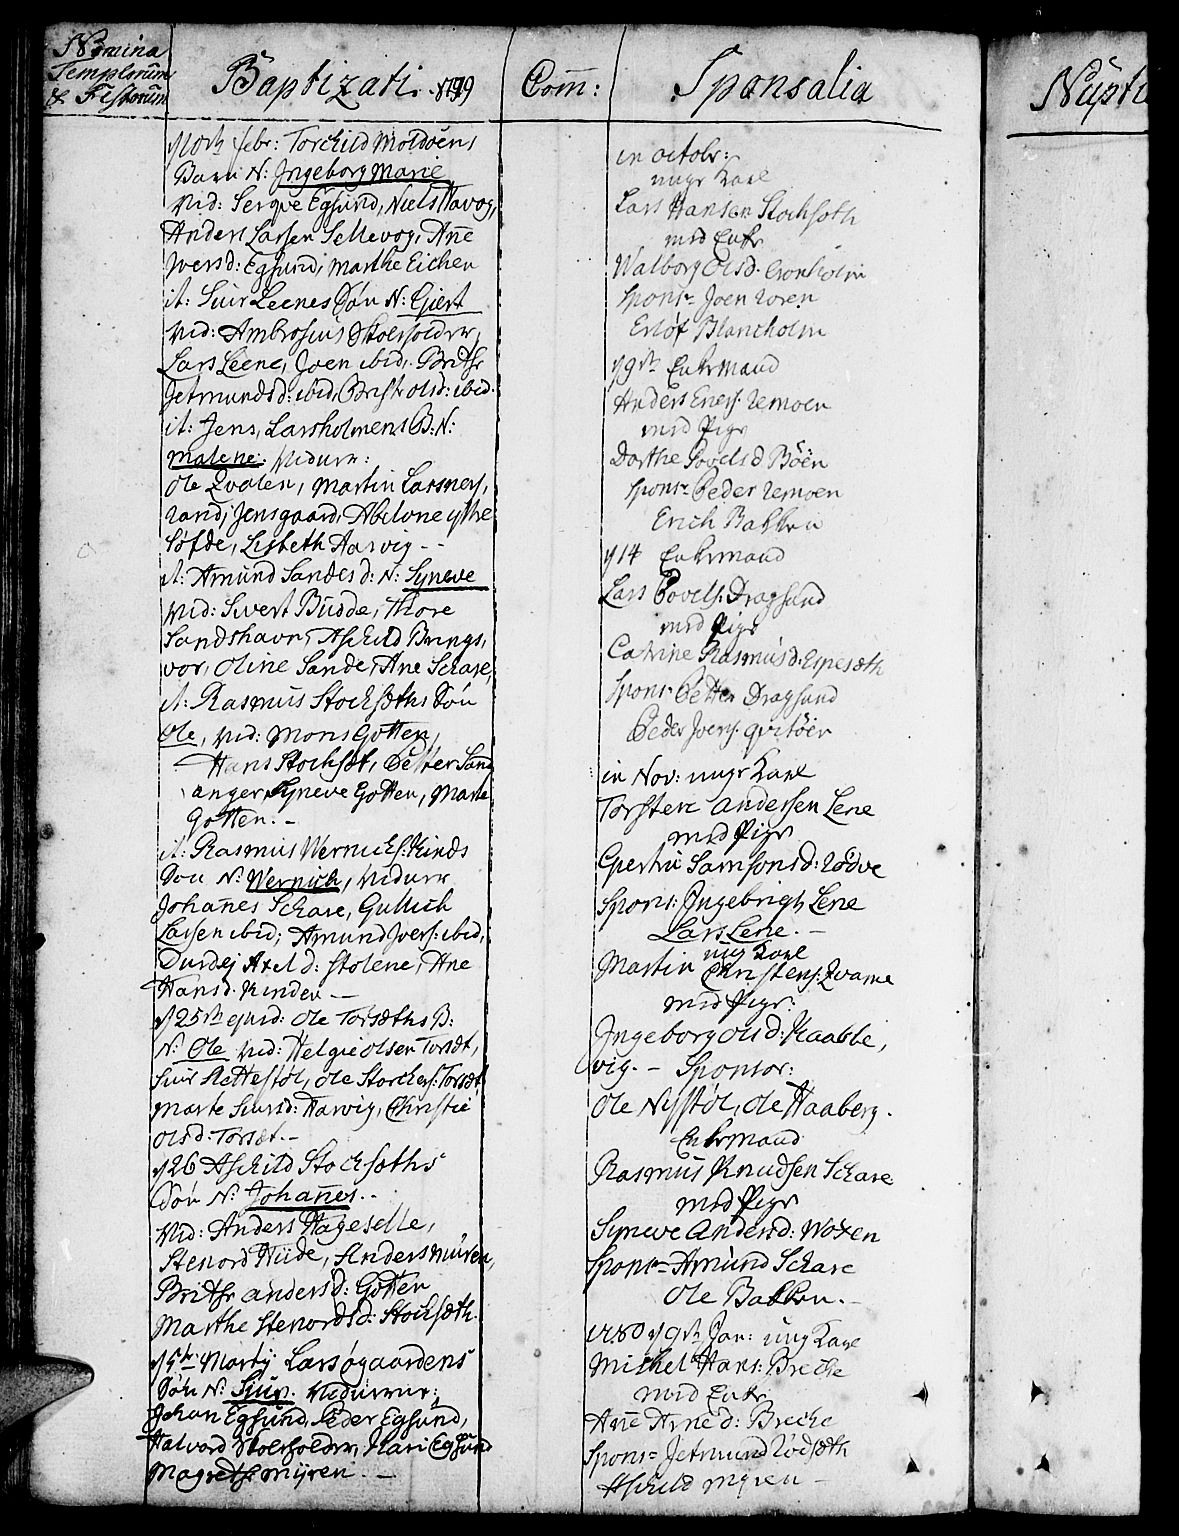 Nomina
Templorum
& Festorum
Baptizati
Com̅:
Sponsalia
Nupti
febr: Torchild Moldøens
Barn N: Ingeborg Marie
Vid: Serqve Egsund, Niels Havog,
Anders Larsen Sellevog, An̅e
Joersd: Egsund, Marthe Eichen
it: Siur Leenes Søn N: Giert
Vid: Ambrosius Skoleholder,
Lars Leene, Joen ibid, Brithe
Jetmundsd: ibid, Brith olsd: ibid.
it: Jens Larsholmens B: N:
Malene. Vidner:
Ole Qvalen, Martin Larsnes,
Rand Jensgaard, Abelone ystre
Søfde, Lisbeth Aarvig --
it: Amund Sandes d: N: Syneve
Vid: Sivert Budde, Thore
Sandshavn, Aschild Brings,
vor, Oline Sande, Ane Schare,
it: Rasmus Stochsæths Søn
Ole, Vid: Mons Gotten,
Hans Stochsæt, Petter Sand
anger, Syneve Gotten, Marte
Gotten. -
it: Rasmus Wernichs: Kinds
Søn N: Wernich, Vidner
Johan̅es Schare, Gullich
Larsen ibid; Amund Joers: ibid,
Durdej Axeld: Stolene, Ane
Hansd: Rinden —
d 25th ejusd: Ole Torsæths B:
N: Ole Vid: Helgie Olsen Torsæt,
Siur Rettestøl, Ole Storchers: Torsæt
Marte Siursd: Harvig, Christie
Olsd: Torsæt.-
d 26 Aschild Stochsæths
Søn N: Johan̅es.-
Vid: Anders Hageselle,
Stenord Hiide, Anders Muren,
Brithe Andersd: Gotten
Marthe Stenordsd: Stochsæth.
d 5th Martij Lars øgaardens
Søn N: Siur. Vidnerne:
Johan Egsund, Peder Egsund,
Halvord Skoleholder, Mari Egsund
Magrethe Myren. —
in octobr:
ungr Karl
Lars Hansen Stochsæth
med Enke
Walborg Olsd. Cronholm
Spons: Joen Voren
Erlof Blancholm
d 9de Enkemand
Anders Eners: Remoen
med Pige
Dorthe Povelsd Bøen
Spons: Peder Remoen
Erich Bakken
d 14 Enkemand
Lars Povels: Dragsund
med Pige
Catrine Rasmusd: Espesæth
Spons: Petter Dragsund
Peder Joers: Qvitøen
in Nov: ungr Karl
Torsten Andersen Lene
med Pige
Gertru Samsonsd: Rødve
Spons: Ingebrigt Lene
Lars Lene. -
ung Karl
Martin Christens: Qvame
med Pige:
Ingeborg Olsd: Kaabbe,
vig. - Sponsor:
Ole Nystøl, Ole Haaberg.
Enkemand
Rasmus Knudsen Schare
med Pige
Syneve Andersd: Voxen
Spons: Amund Schare
Ole Bakken. -
d 9th Jan: ung Karl
Michel Hans: Breche
med Enke
An̅e Arned: Breche
Spons: Jetmund Rødsæth
Aschild Myren -